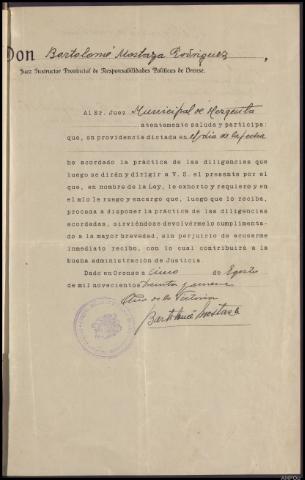 Don Bartolomé Mostaza Rodriguez,
Juez Instructor Provincial de Responsabilidades Políticas de Orense.
Al Sr. Juez Municipal de Mezquita
atentamente saluda y participa:
que, en providencia dictada en el día de la fecha
he acordado la práctica de las diligencias que
luego se dirán y dirigir a V. S. el presente por el
que, en nombre de la Ley, le exhorto y requiero y en
el mio le ruego y encargo que, luego que lo reciba,
proceda a disponer la práctica de las diligencias
acordadas, sirviéndose devolvérmelo cumplimenta-
do a la mayor brevedad, sin perjuicio de acusarme
inmediato recibo, con lo cual contribuirá a la
buena administración de Justicia.
Dado en Orense a cinco de Agosto
de mil novecientos treinta y nueve
Año de la Victoria
Bartolomé Mostaza